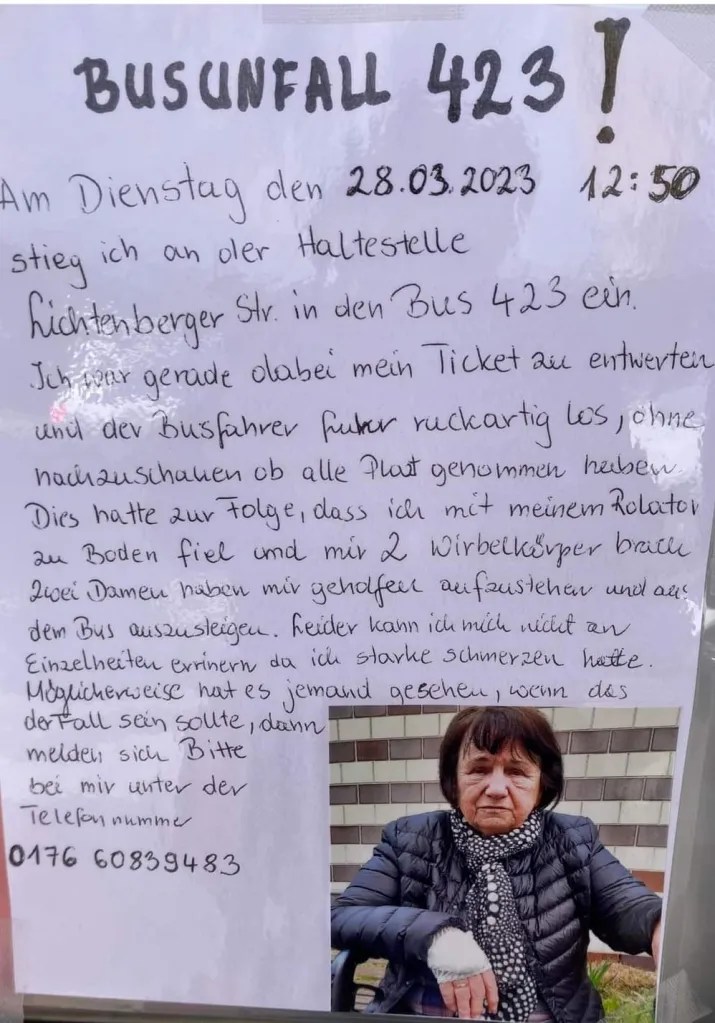 BUSUNFALL 423!
Am Dienstag den 28.03.2023 12:50
stieg ich an der Haltestelle
Lichtenberger Str. in den Bus 423 ein.
Ich war gerade dabei mein Ticket zu entwerten
und der Busfahrer fuhr ruckartig los, ohne
nachzuschauen ob alle Platz genommen haben.
Dies hatte zur Folge, dass ich mit meinem Rolator
zu Boden fiel und mir 2 Wirbelkörper brach
Zwei Damen haben mir geholfen aufzustehen und aus
dem Bus auszusteigen. Leider kann ich mich nicht an
Einzelheiten errinern da ich starke schmerzen hatte.
Möglicherweise hat es jemand gesehen, wenn das
der Fall sein sollte, dann
melden sich Bitte
bei mir unter der
Telefonnummer
0176 60839483